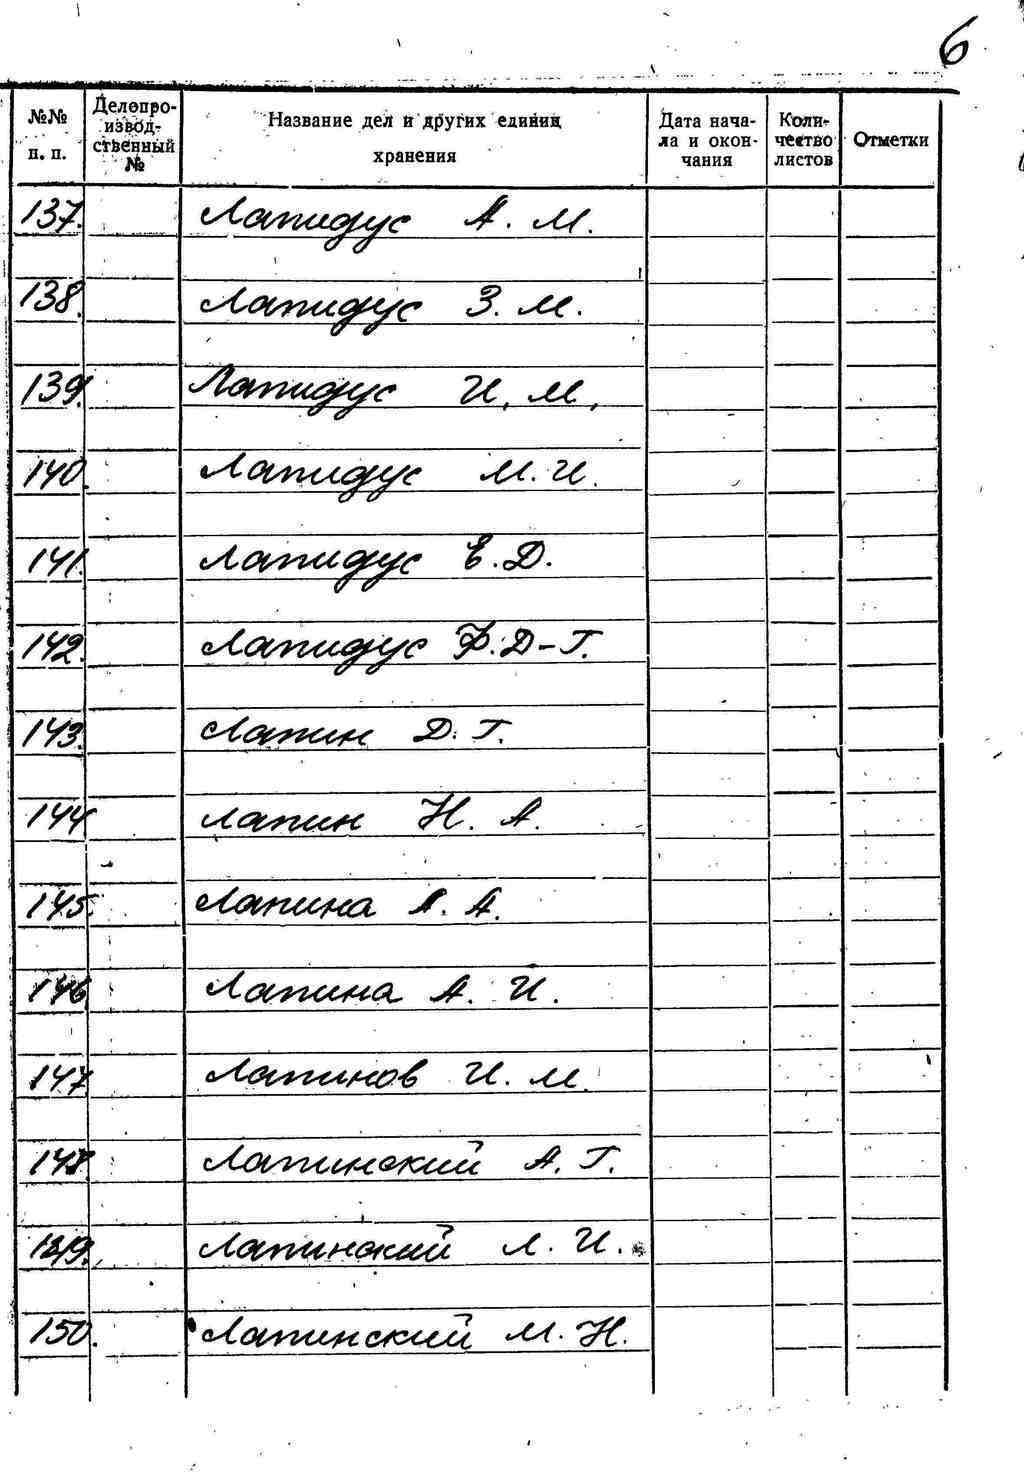 6
№№ п. п. Делопроизводственный № Название дел и других единиц хранения Дата начала и окончания Количество листов Отметки
137. Лапидус А. М.
138. Лапидус З. М.
139. Лапидус И. М.
140. Лапидус М. И.
141. Лапидус Е. Д.
142. Лапидус Ф. Д-Г.
143. Лапин Д. Г.
144 Лапин Н. А.
145. Лапина А. А.
146 Лапина А. И.
147 Лапинов И. М.
148. Лапинский А. Г.
149. Лапинский Л. И.
150. Лапинский М. Н.